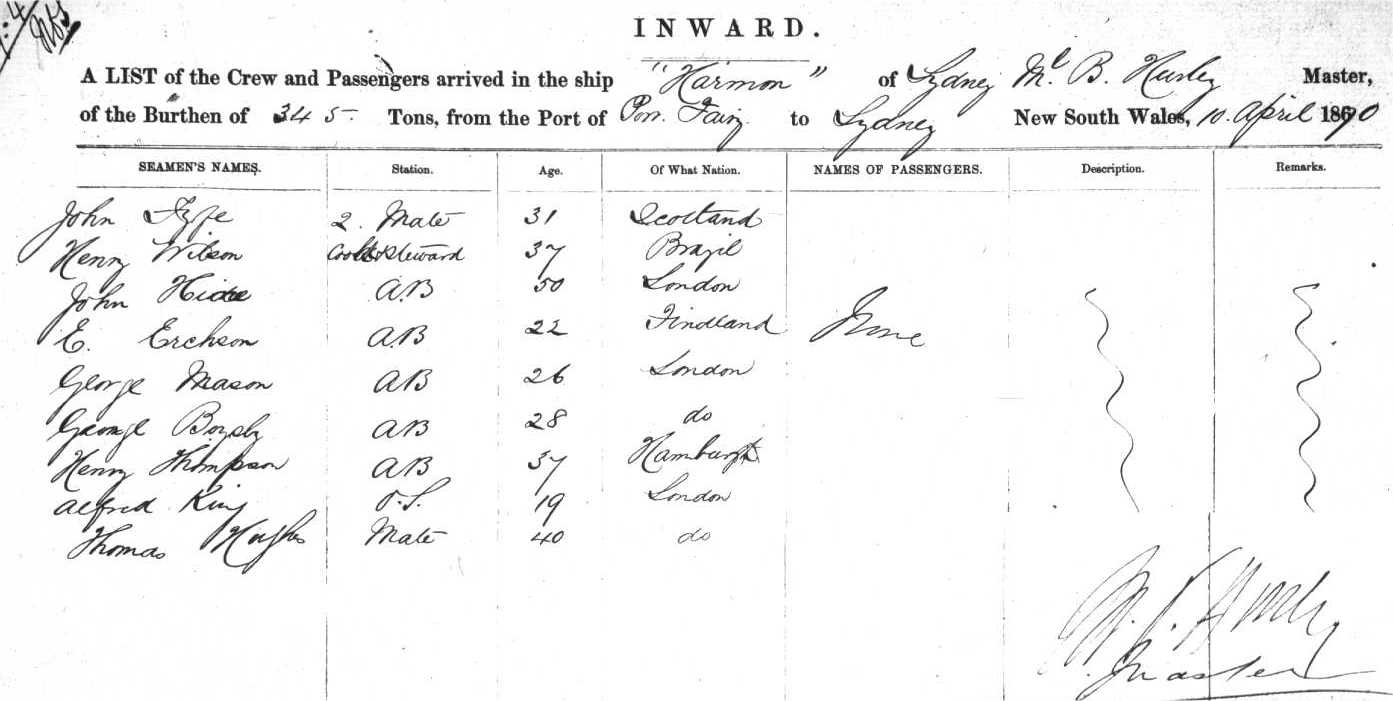 INWARD.
A LIST of the Crew and Passengers arrived in the ship "Harmon" of Sydney Mc B. Hurley Master,
of the Burthen of 345 Tons, from the Port of Fairy to Sydney New South Wales, 10 April 1870
SEAMEN'S NAMES. Station. Age. Of What Nation. NAMES OF PASSENGERS. Description. Remarks.
John Fyfe 2. Mate 31 Scotland
Henry Wilson Cook & Steward 37 Brazil
John 50 London
E. Erchson A.B 22 Findland None
George Mason AB 26 London
George AB 28 do
Henry Thompson AB 37 Hamburgh
Alfred King O.S. 19 London
Thomas Hughes Mate 40 do
Master